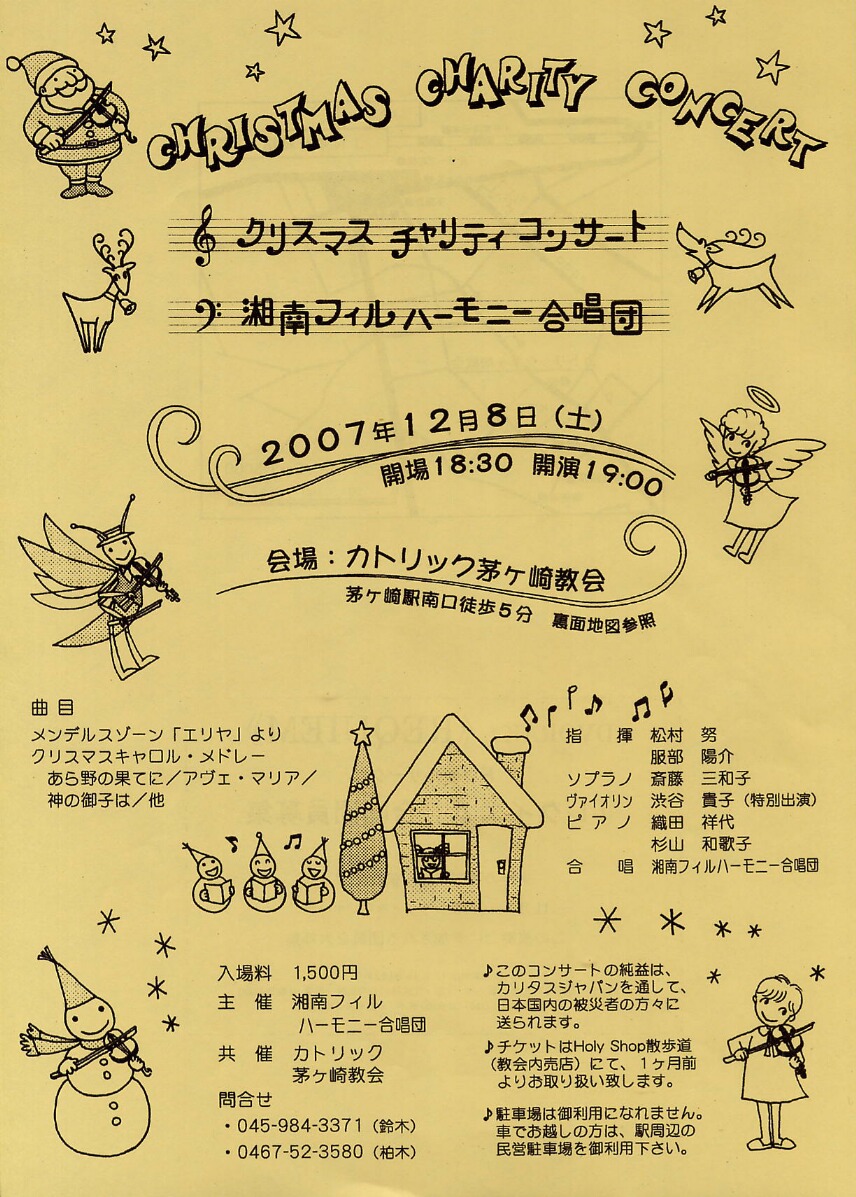 CHRISTMAS CHARITY CONCERT
クリスマス チャリティ コンサート
湘南フィルハーモニー合唱団
2007年12月8日（土）
開場18:30 開演19:00
会場：カトリック茅ヶ崎教会
茅ヶ崎駅南口徒歩5分 裏面地図参照
曲目
メンデルスゾーン「エリヤ」より
クリスマスキャロル・メドレー
あら野の果てに／アヴェ・マリア／
神の御子は／他
指 揮 松村 努
服部 陽介
ソプラノ 斎藤 三和子
ヴァイオリン 渋谷 貴子（特別出演）
ピアノ 織田 祥代
杉山 和歌子
合 唱 湘南フィルハーモニー合唱団
入場料 1,500円
主 催 湘南フィル
ハーモニー合唱団
共 催 カトリック
茅ヶ崎教会
問合せ
・045-984-3371（鈴木）
・0467-52-3580（柏木）
♪このコンサートの純益は、
カリタスジャパンを通して、
日本国内の被災者の方々に
送られます。
♪チケットはHoly Shop散歩道
（教会内売店）にて、1ヶ月前
よりお取り扱い致します。
♪駐車場は御利用になれません。
車でお越しの方は、駅周辺の
民営駐車場を御利用下さい。